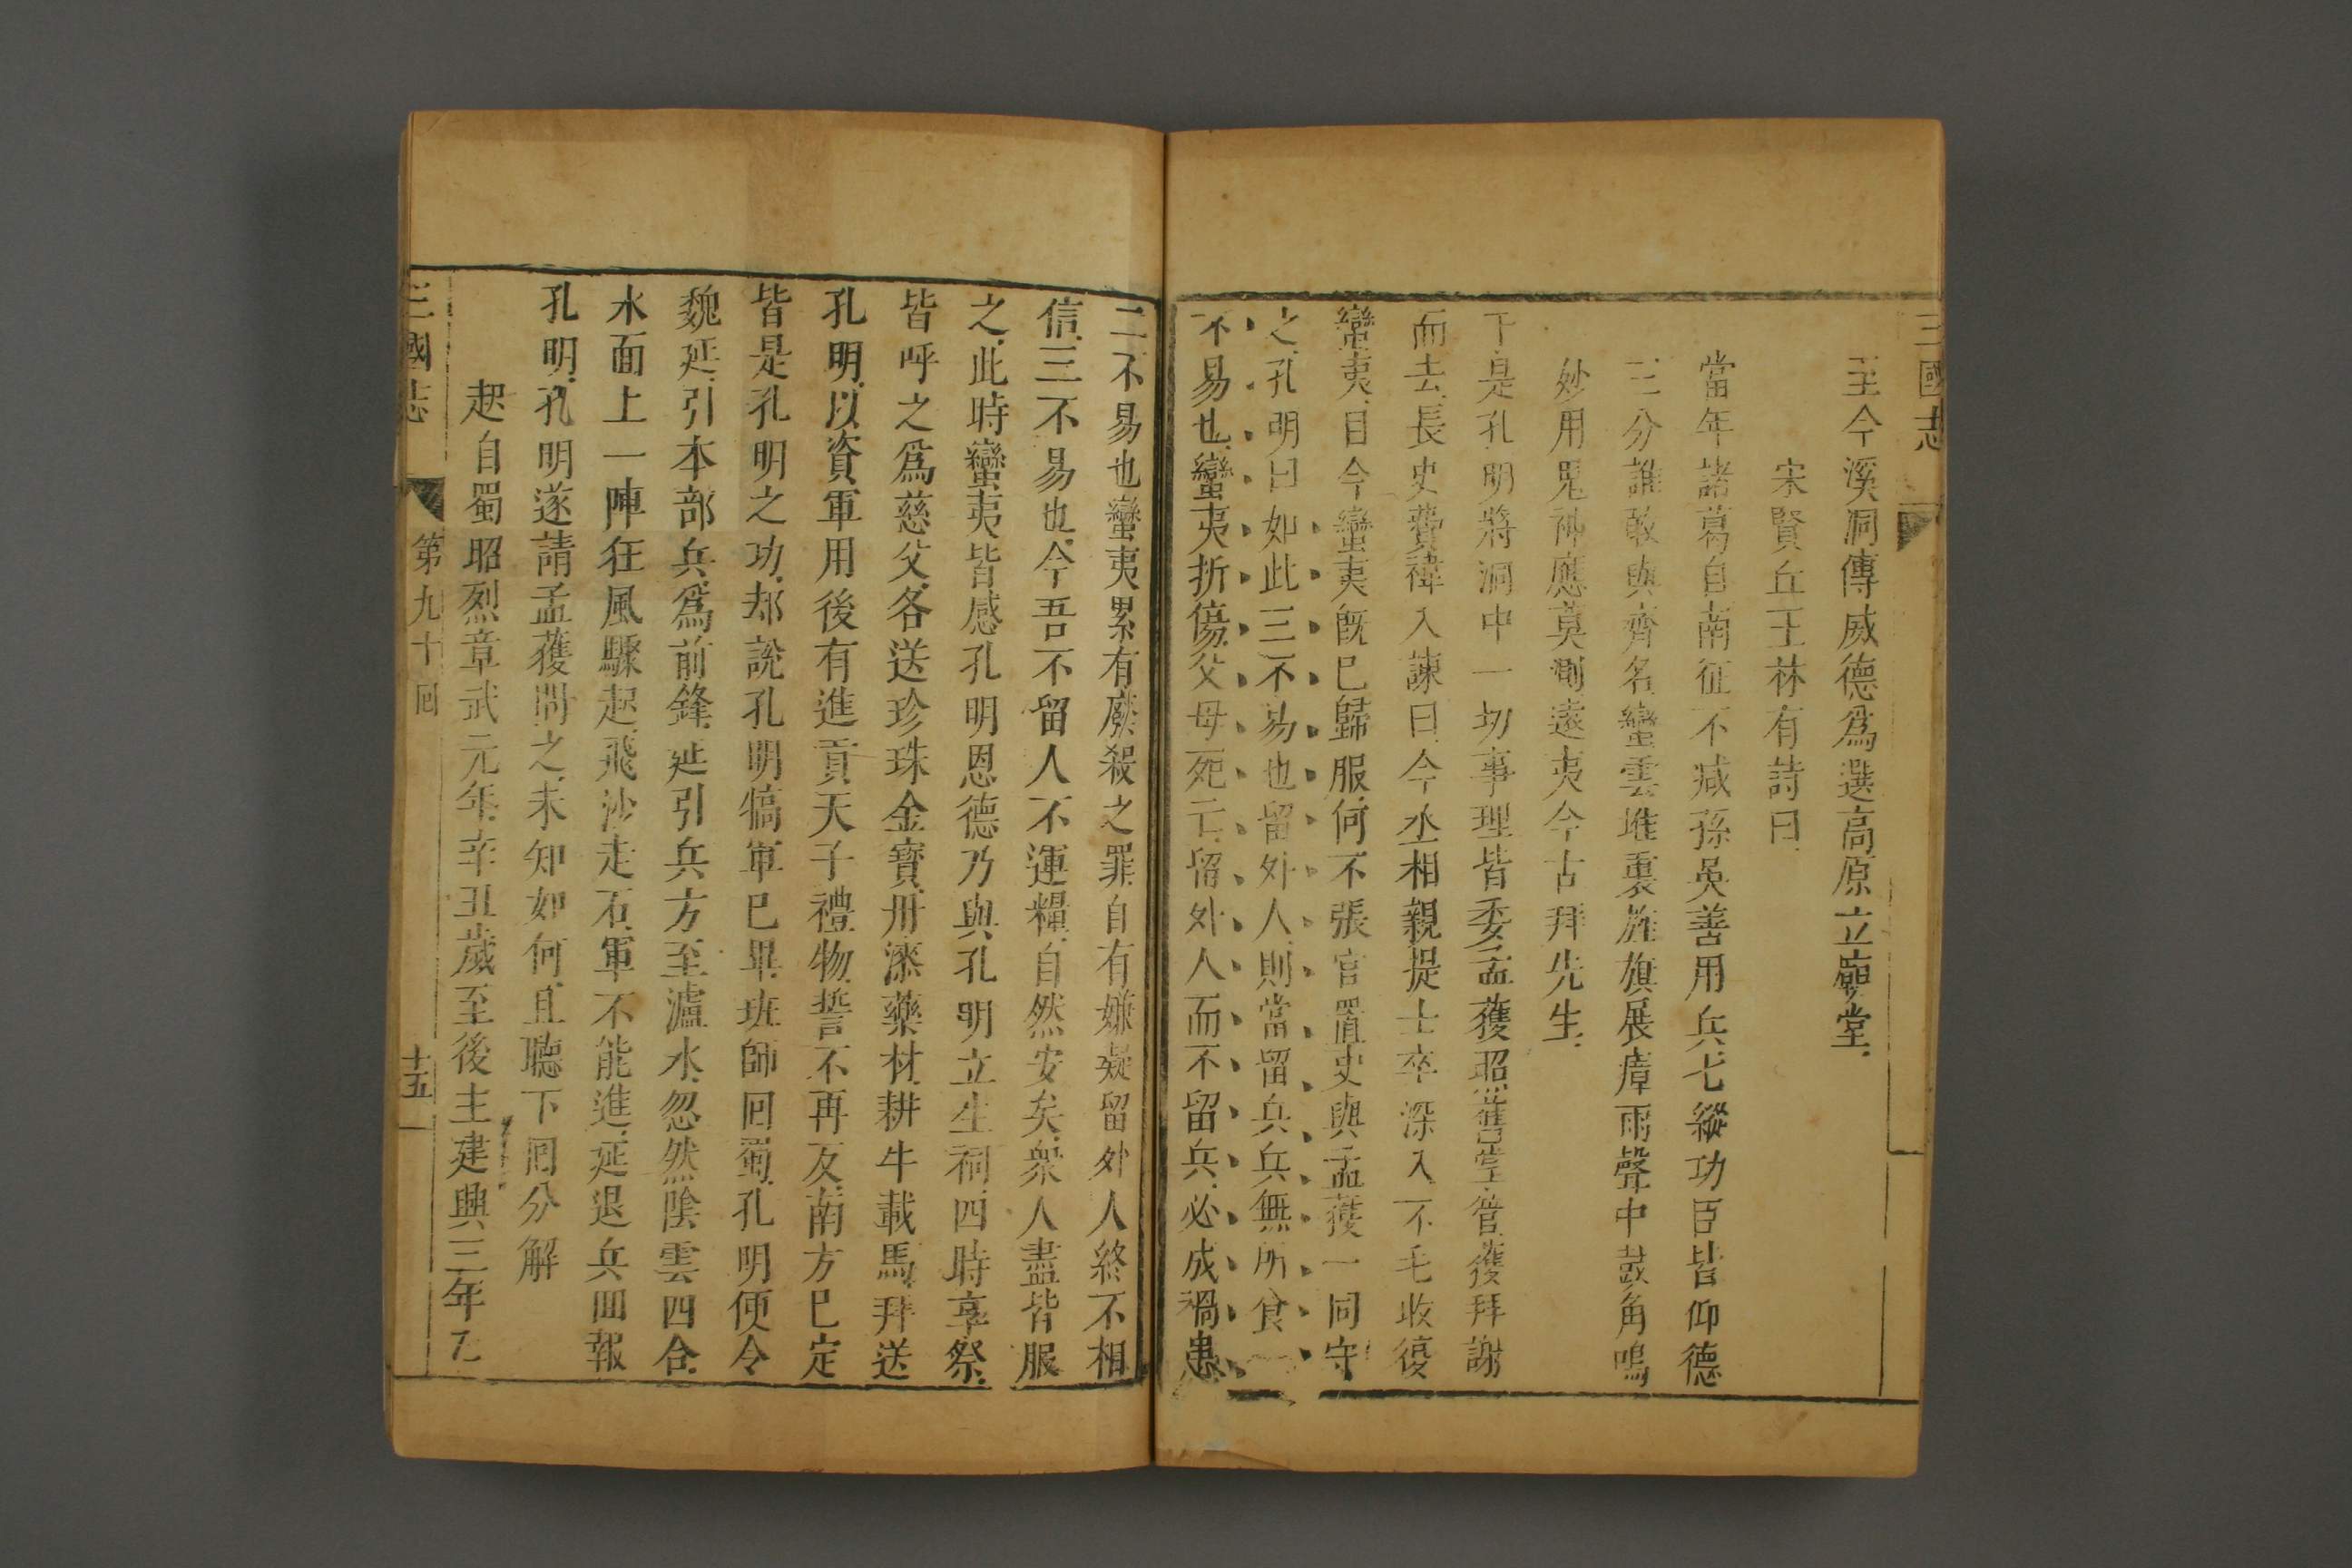 三國志
至今溪洞傳威德爲選高原立廟堂
宋賢丘玉林有詩曰
當年諸葛自南征不减孫吳善用兵七縱功臣皆仰德
三分誰敢與齊名蠻雲堆裏旌旗展瘴雨聲中鼓角鳴
妙用鬼神應莫測遠夷今古拜先生
于是孔明將洞中一切事理皆委孟獲照舊掌管獲拜謝
而去長史費禕入諫曰今丞相親提士卒深入不毛收復
蠻夷目今蠻夷既已歸服何不張官置吏與孟獲一同守
之孔明曰如此三不易也留外人則當留兵兵無所食一
不易也蠻夷折傷父母死亡留外人而不留兵必成禍患
二不易也蠻夷累有廢殺之罪自有嫌疑留外人終不相
信三不易也今吾不留人不運糧自然安矣衆人盡皆服
之此時蠻夷皆感孔明恩德乃與孔明立生祠四時享祭
皆呼之爲慈父各送珍珠金寶丹漆藥材耕牛載馬拜送
孔明以資軍用後有進貢天子禮物誓不再反南方已定
皆是孔明之功却說孔明犒軍已畢班師回蜀孔明便令
魏延引本部兵爲前鋒延引兵方至瀘水忽然陰雲四合
水面上一陣狂風驟起飛沙走石軍不能進延退兵回報
孔明孔明遂請孟獲問之未知如何且聽下回分解
起自蜀昭烈章武元年辛丑歲至後主建興三年乙
三國志 第九十回 十五